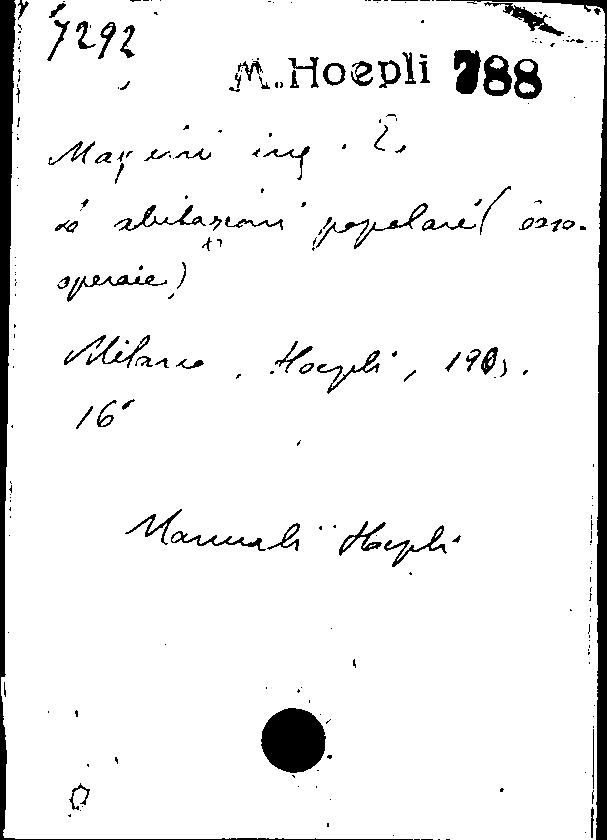 7292
M. Hoepli 788
Magrini ing. E.
Le abitazioni popolari (case
operaie)
Milano, Hoepli, 1905.
16°
Manuali Hoepli